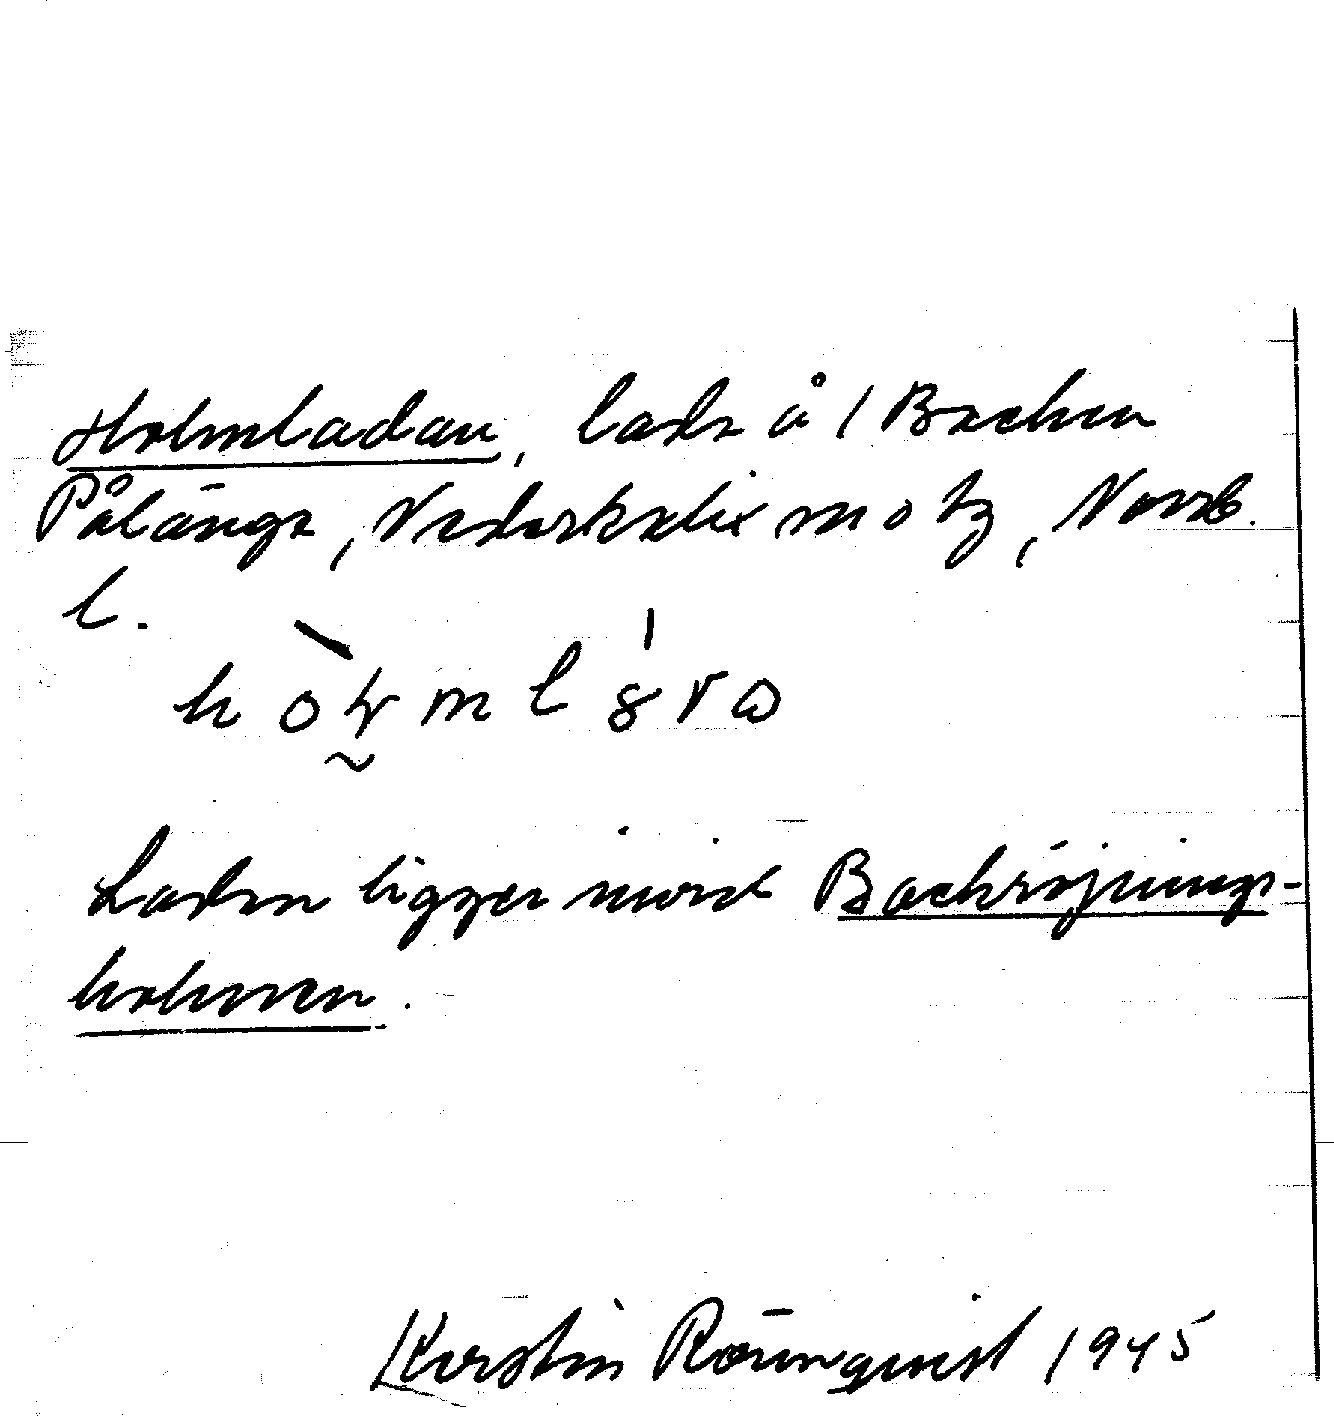 Holmladan, lada å 1 Backen
Pålänge, Nederkalix sn o tg, Norrb.
l.
Ladan ligger invid Backröjnings-
holmen.
Kerstin Rönnquist 1945